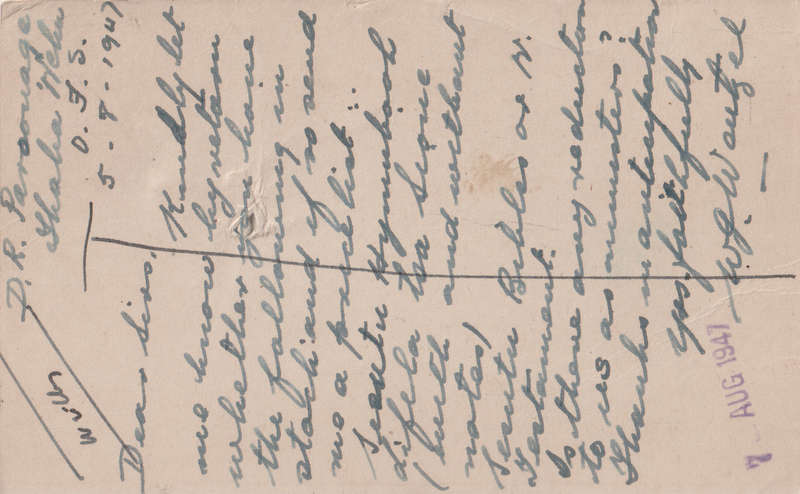 D. R. Parsonage
Thaba 'Nchu
O. F. S.
5 - 8 - 1947
With
Dear Sirs,
Kindly let
me know by return
whether you have
the following in
stock and if so send
me a price list:
Hymnbook
difela tsa Sione
(both and without
notes)
Bibles or N.
Testament.
Is there any reduction
to us as ministers?
Thanks in anticipation
Yrs faithfully
7 - AUG 1947